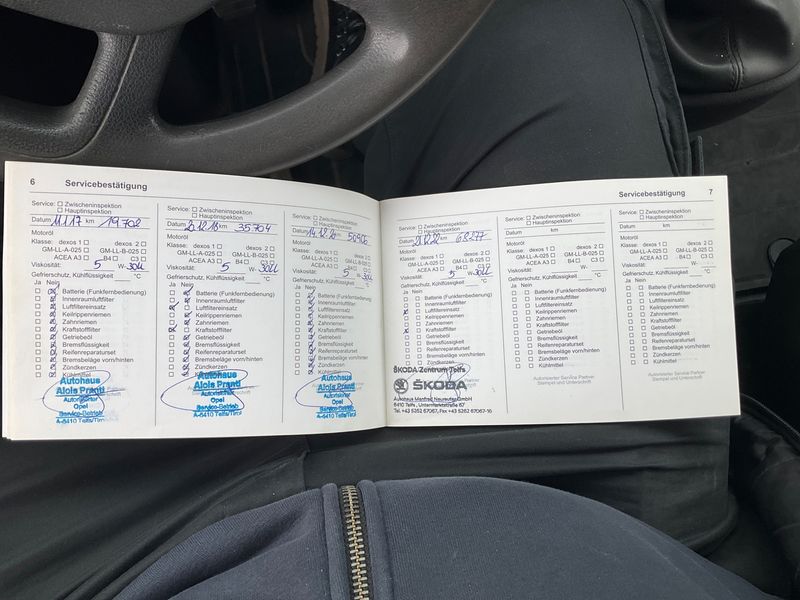 6 Servicebestätigung
Service: Zwischeninspektion
Hauptinspektion
Datum 11.1.17 km 19.702
Motoröl
Klasse: dexos 1 dexos 2
GM-LL-A-025 GM-LL-B-025
ACEA A3 B4 C3
Viskosität: 5 W-30
Gefrierschutz, Kühlflüssigkeit °C
Ja Nein
Batterie (Funkfernbedienung)
Innenraumluftfilter
Luftfiltereinsatz
Keilrippenriemen
Zahnriemen
Kraftstofffilter
Getriebeöl
Bremsflüssigkeit
Reifenreparaturset
Bremsbeläge vorn/hinten
Zündkerzen
Kühlmittel
Autohaus
Alois Prantl
Autorisierter
Opel
Service-Betrieb
A-6410 Telfs/Tirol
Service: Zwischeninspektion
Hauptinspektion
Datum km 35.704
Motoröl
Klasse: dexos 1 dexos 2
GM-LL-A-025 GM-LL-B-025
ACEA A3 B4 C3
Viskosität: 5 W-30
Gefrierschutz, Kühlflüssigkeit °C
Ja Nein
Batterie (Funkfernbedienung)
Innenraumluftfilter
Luftfiltereinsatz
Keilrippenriemen
Zahnriemen
Kraftstofffilter
Getriebeöl
Bremsflüssigkeit
Reifenreparaturset
Bremsbeläge vorn/hinten
Zündkerzen
Kühlmittel
Autohaus
Alois Prantl
Autorisierter
Opel
Service-Betrieb
A-6410 Telfs/Tirol
Service: Zwischeninspektion
Hauptinspektion
Datum 14.12.20 km 50906
Motoröl
Klasse: dexos 1 dexos 2
GM-LL-A-025 GM-LL-B-025
ACEA A3 B4 C3
Viskosität: 5 W-
Gefrierschutz, Kühlflüssigkeit °C
Ja Nein
Batterie (Funkfernbedienung)
Innenraumluftfilter
Luftfiltereinsatz
Keilrippenriemen
Zahnriemen
Kraftstofffilter
Getriebeöl
Bremsflüssigkeit
Reifenreparaturset
Bremsbeläge vorn/hinten
Zündkerzen
Kühlmittel
Autohaus
Alois Prantl
Autorisierter
Opel
Service-Betrieb
A-6410 Telfs/Tirol
Servicebestätigung 7
Service: Zwischeninspektion
Hauptinspektion
Datum km 68277
Motoröl
Klasse: dexos 1 dexos 2
GM-LL-A-025 GM-LL-B-025
ACEA A3 B4 C3
Viskosität: 5 W-30
Gefrierschutz, Kühlflüssigkeit °C
Ja Nein
Batterie (Funkfernbedienung)
Innenraumluftfilter
Luftfiltereinsatz
Keilrippenriemen
Zahnriemen
Kraftstofffilter
Getriebeöl
Bremsflüssigkeit
Reifenreparaturset
Bremsbeläge vorn/hinten
Zündkerzen
Kühlmittel
ŠKODA Zentrum Telfs
ŠKODA
Autohaus Manfred Neurauter GmbH
6410 Telfs, Untermarktstraße 67
Tel. +43 5262 67067, Fax +43 5262 67067-16
Service: Zwischeninspektion
Hauptinspektion
Datum km
Motoröl
Klasse: dexos 1 dexos 2
GM-LL-A-025 GM-LL-B-025
ACEA A3 B4 C3
Viskosität: W-
Gefrierschutz, Kühlflüssigkeit °C
Ja Nein
Batterie (Funkfernbedienung)
Innenraumluftfilter
Luftfiltereinsatz
Keilrippenriemen
Zahnriemen
Kraftstofffilter
Getriebeöl
Bremsflüssigkeit
Reifenreparaturset
Bremsbeläge vorn/hinten
Zündkerzen
Kühlmittel
Autorisierter Service Partner
Stempel und Unterschrift
Service: Zwischeninspektion
Hauptinspektion
Datum km
Motoröl
Klasse: dexos 1 dexos 2
GM-LL-A-025 GM-LL-B-025
ACEA A3 B4 C3
Viskosität: W-
Gefrierschutz, Kühlflüssigkeit °C
Ja Nein
Batterie (Funkfernbedienung)
Innenraumluftfilter
Luftfiltereinsatz
Keilrippenriemen
Zahnriemen
Kraftstofffilter
Getriebeöl
Bremsflüssigkeit
Reifenreparaturset
Bremsbeläge vorn/hinten
Zündkerzen
Kühlmittel
Autorisierter Service Partner
Stempel und Unterschrift